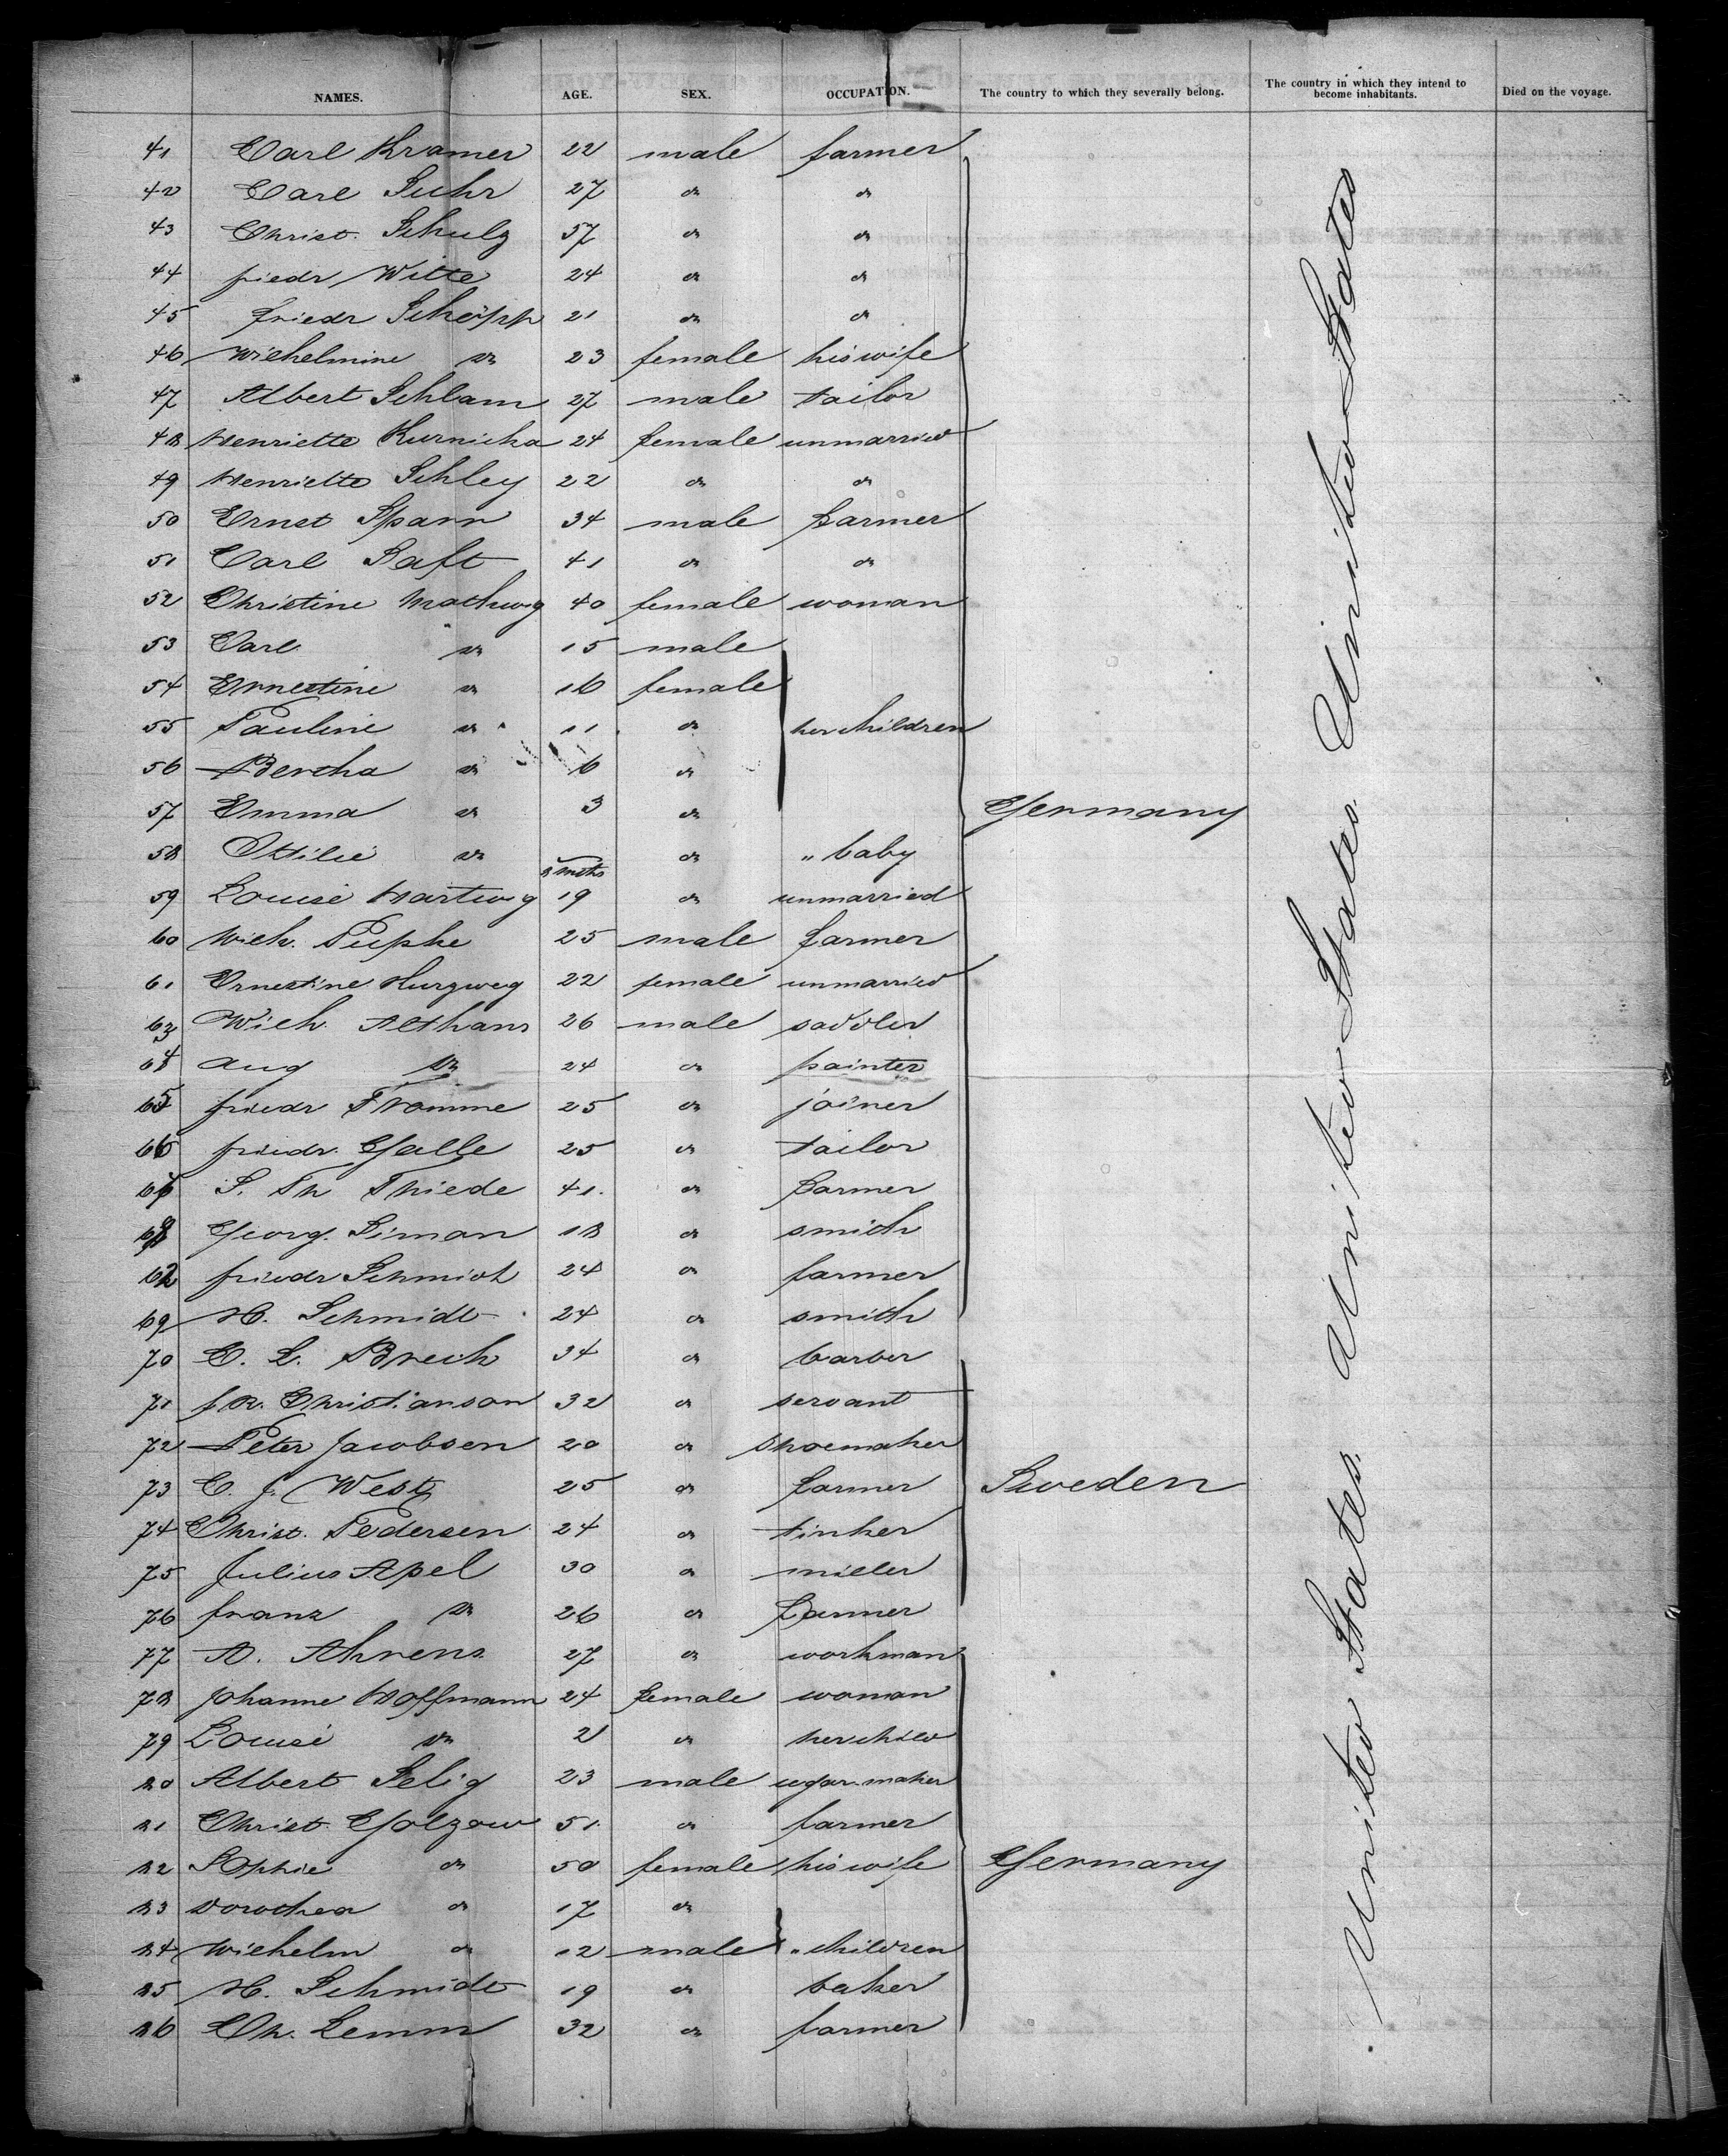 NAMES. AGE. SEX. OCCUPATION. The country to which they severally belong. The country in which they intend to become inhabitants. Died on the voyage.
41 Carl Kramer 22 male farmer
42 Carl Suhr 27 do do
43 Christ. Schulz 57 do do
44 friedr Witte 24 do do
45 friedr Schöpp 21 do do
46 Wilhelmine do 23 female his wife
47 Albert Schlam 27 male tailor
48 Henriette Kurnicka 24 female unmarried
49 Henriette Schley 22 do do
50 Ernst Spann 34 male farmer
51 Carl Saft 41 do do
52 Christine Mathwig 40 female woman
53 Carl do 15 male
54 Ernestine do 16 female
55 Pauline do 11 do her children
56 Bertha do 6 do
57 Emma do 3 do Germany
58 Ottilie do 8 mths do " baby
59 Louise Hartwig 19 do unmarried
60 Wilh. 25 male farmer
61 Ernestine Kurzweg 22 female unmarried
63 Wilh. Althans 26 male saddler
64 Aug do 24 do painter
65 friedr Fromme 25 do joiner
66 friedr. Galle 25 do tailor
67 S. Th Thiede 41. do farmer
68 Georg. Siman 18 do smith
friedr Schmidt 24 do farmer
69 H. Schmidt 24 do smith
70 C. L. Brech 34 do barber
71 fr. Christianson 32 do servant
72 Peter Jacobsen 20 do shoemaker
73 C. J. West 25 do farmer Sweden
74 Christ. Pedersen 24 do tinker
75 Julius Apel 30 do miller
76 franz do 26 do farmer
77 A. Ahrens 27 do workman
78 Johanne Hoffmann 24 female woman
79 Louise do 2 do her child
80 Albert Selig 23 male maker
81 Christ. Golzow 51. do farmer
82 Sophie do 50 female his wife Germany
83 Dorothea do 17 do
84 Wilhelm do 12 male " children
85 H. Schmidt 19 do baker
86 Ch. Lemm 32 do farmer
United States United States United States